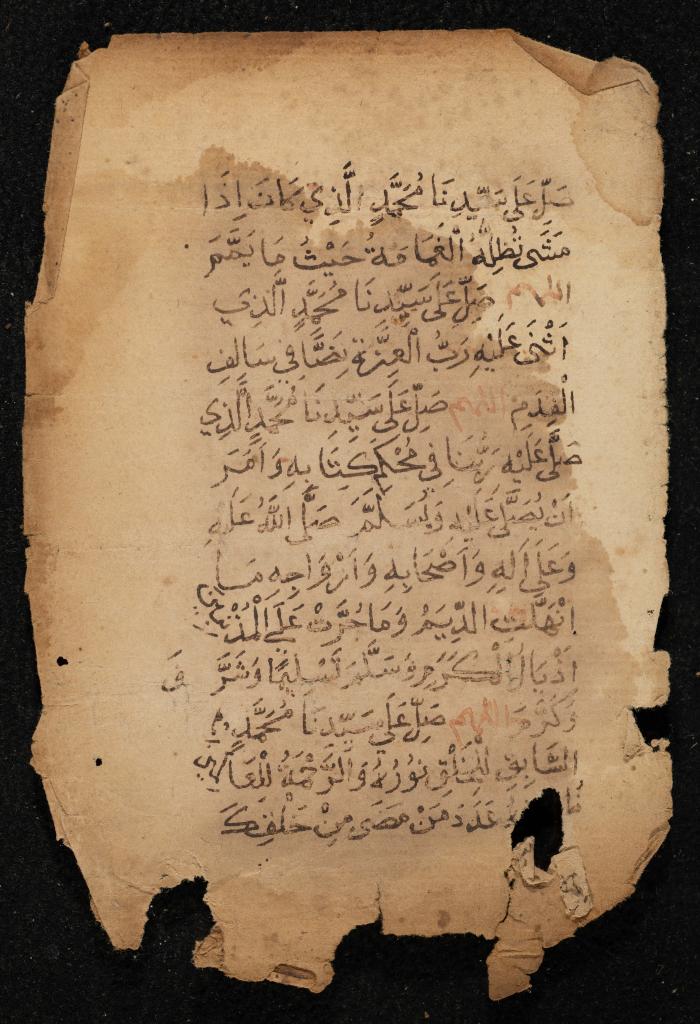 صَلِّ عَلَى سَيِّدِنَا مُحَمَّدٍ الَّذِي كَانَ إِذَا
مَشَى تُظِلُّهُ الْغَمَامَةُ حَيْثُ مَا يَمَّمَ
اللهم صَلِّ عَلَى سَيِّدِنَا مُحَمَّدٍ الَّذِي
اَثْنَى عَلَيْهِ رَبُّ الْعِزَّةِ نَصًّا فِي سَالِفِ
الْقِدَمِ اللهم صَلِّ عَلَى سَيِّدِنَا مُحَمَّدٍ الَّذِي
صَلَّى عَلَيْهِ رَبُّنَا فِي مُحْكَمِ كِتَابِهِ وَاَمَرَ
اَنْ يُصَلَّى عَلَيْهِ وَيُسَلَّمَ صَلَّى اللهُ عَلَيْهِ
وَعَلَى اَلِهِ وَاَصْحَابِهِ وَاَزْوَاجِهِ مَا
انْهَلَّتِ الدِّيَمُ وَمَا جُرَّتْ عَلَى الْمُذْنِبِينَ
اَذْيَالُ الْكَرَمِ وَسَلَّمَ تَسْلِيمًا وَشَرَّفَ
وَكَرَّمَ اللهم صَلِّ عَلَى سَيِّدِنَا مُحَمَّدٍ
السَّابِقِ لِلْخَلْقِ نُورُهُ وَالرَّحْمَةُ لِلْعَالَمِينَ
عَدَدَ مَنْ مَضَى مِنْ خَلْقِكَ